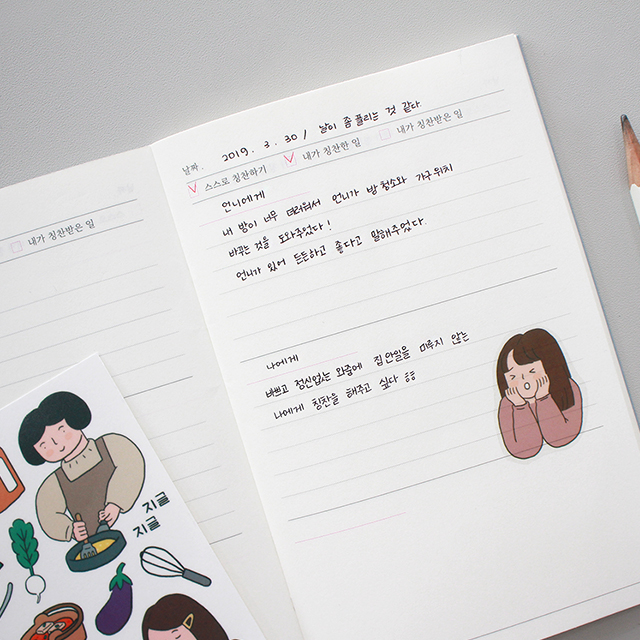 날짜. 2019. 3. 30 / 날이 좀 풀리는 것 같다.
스스로 칭찬하기 내가 칭찬한 일 내가 칭찬받은 일
언니에게
내 방이 너무 더러워서 언니가 방 청소와 가구 위치
바꾸는 것을 도와주었다!
언니가 있어 든든하고 좋다고 말해주었다.
나에게
바쁘고 정신없는 와중에 집안일을 미루지 않는
나에게 칭찬을 해주고 싶다
내가 칭찬받은 일
지글
지글